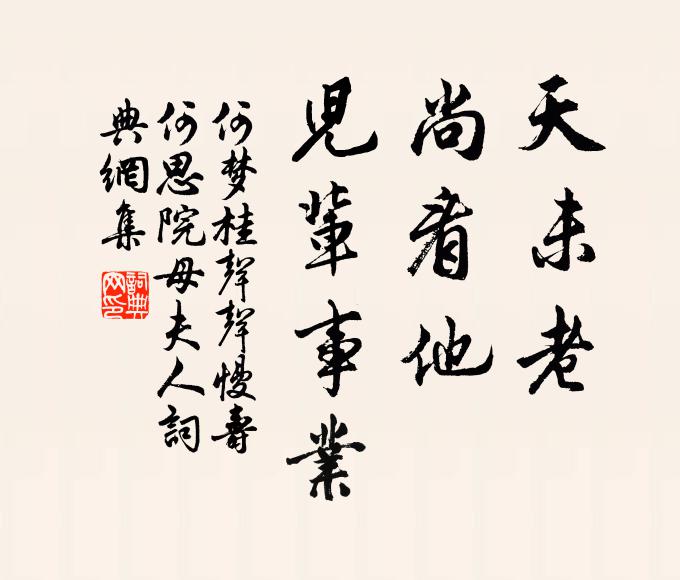 天未老
尚看他
児輩事業
何梦桂聲聲慢壽
何思院母夫人詞
典網集
詞典网印